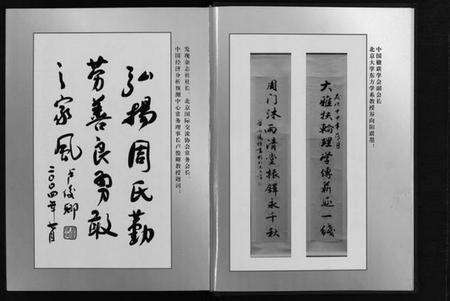 弘揚周氏勤
劳善良勇敢
之家風
卢俊卿
二〇〇四年
发现杂志社社长、北京国际交流协会常务会长、
中国经济分析预测中心常务理事长卢俊卿教授题词：
大雅扶輪理学傳薪延一綫
周门沐雨清堂振鐸永千秋
中国楹联学会副会长
北京大学东方学系教授方向阳联墨：